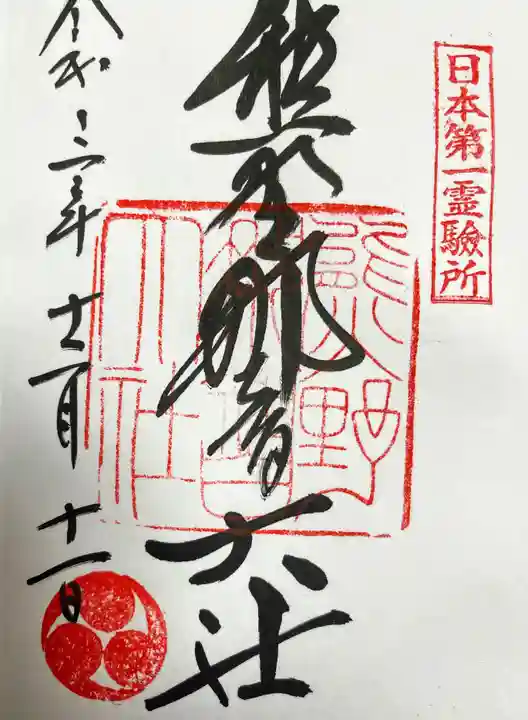 日本第一霊験所
熊野那智大社
熊野
那智
大社
令和三年十二月十一日